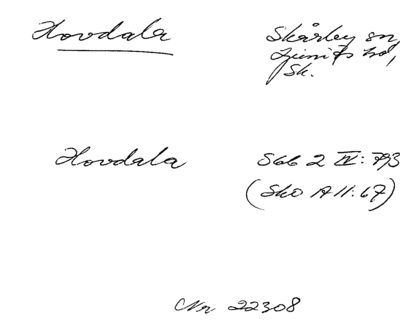 Hovdala
Skårby sn,
Ljunits hd,
Sk.
Hovdala
Sbb 2 IV: 793
(Sko A II: 67)
Nr 22308